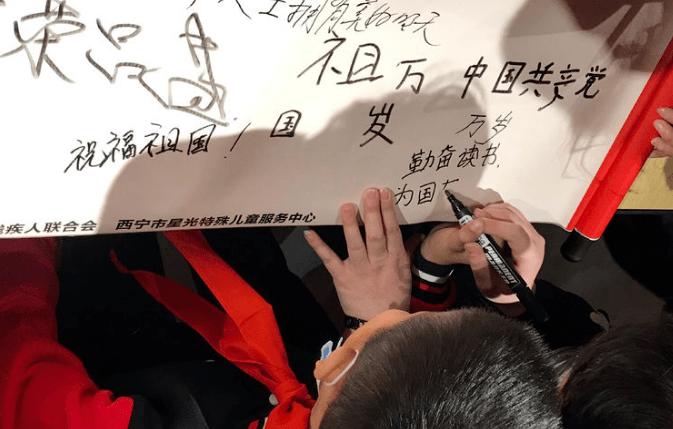 士拥有美好
荣昌盛
祖国
万岁
中国共产党
万岁
祝福祖国！
勤奋读书,
为国
疾人联合会 西宁市星光特殊儿童服务中心